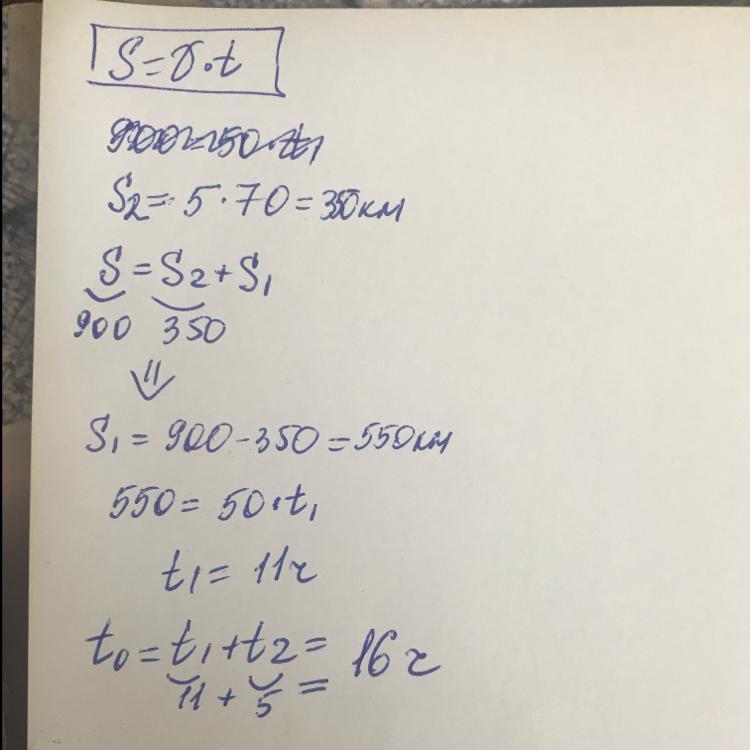 S=υ·t
900=50·t₁
S₂=5·70=350км
S=S₂+S₁
900 350
⇓
S₁=900-350=550км
550=50·t₁
t₁=11ч
t₀=t₁+t₂=16ч
11+5=